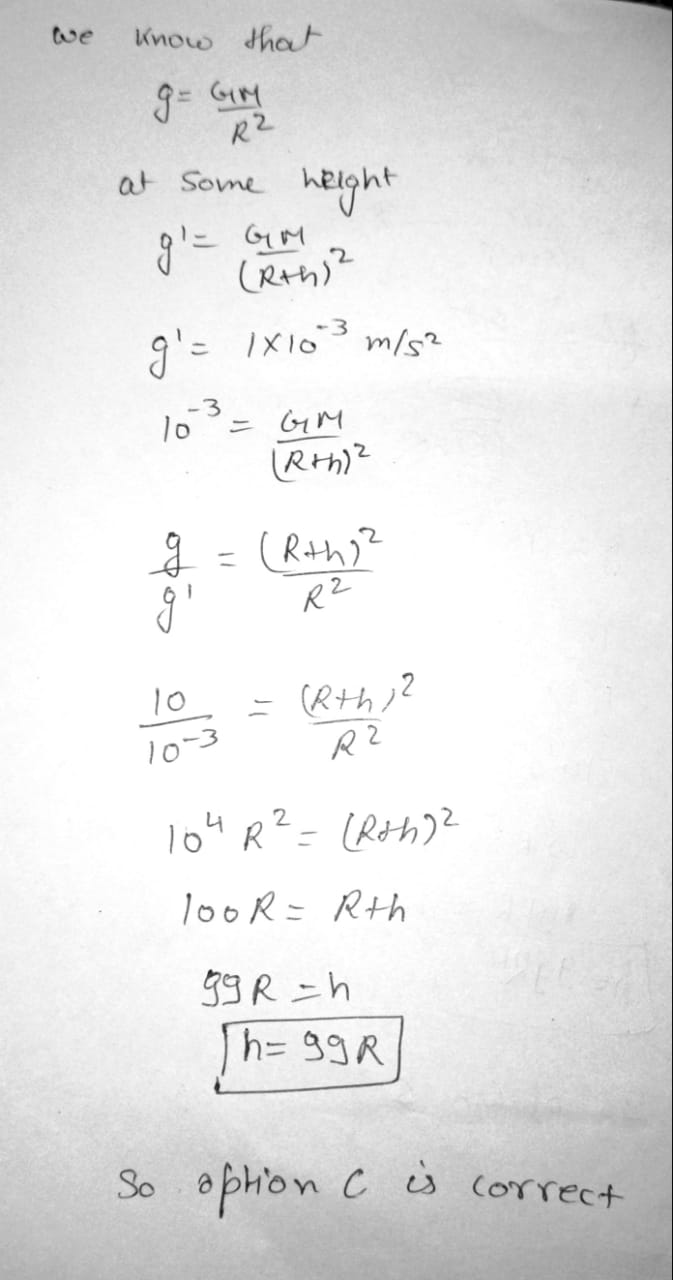 we know that
g = GM/R²
at some height
g' = GM/(R+h)²
g' = 1×10⁻³ m/s²
10⁻³ = GM/(R+h)²
g/g' = (R+h)²/R²
10/10⁻³ = (R+h)²/R²
10⁴ R² = (R+h)²
100R = R+h
99R = h
h = 99R
So option C is correct